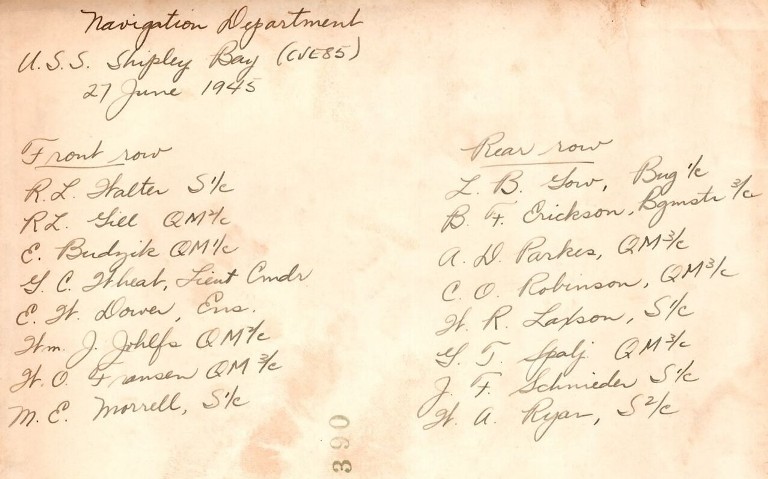 Navigation Department
U.S.S. Shipley Bay (CVE85)
27 June 1945
Front row
R. L. Walter S 1/c
R L. Gill QM 2/c
E. Budzik QM 1/c
G. C. Wheat, Lieut Cmdr
E. W. Dower, Ens.
Wm. J. QM 2/c
W. O. Fransen QM 3/c
M. E. Morrell, S 1/c
Rear row
L. B. Gow, Bug 1/c
B. F. Erickson, Bgmstr 3/c
A. D. Parkes, QM 3/c
C. O. Robinson, QM 3/c
W. R. Laxson, S 1/c
G. T. Spalj QM 3/c
J. F. Schnieder S 1/c
W. A. Ryan, S 2/c
390